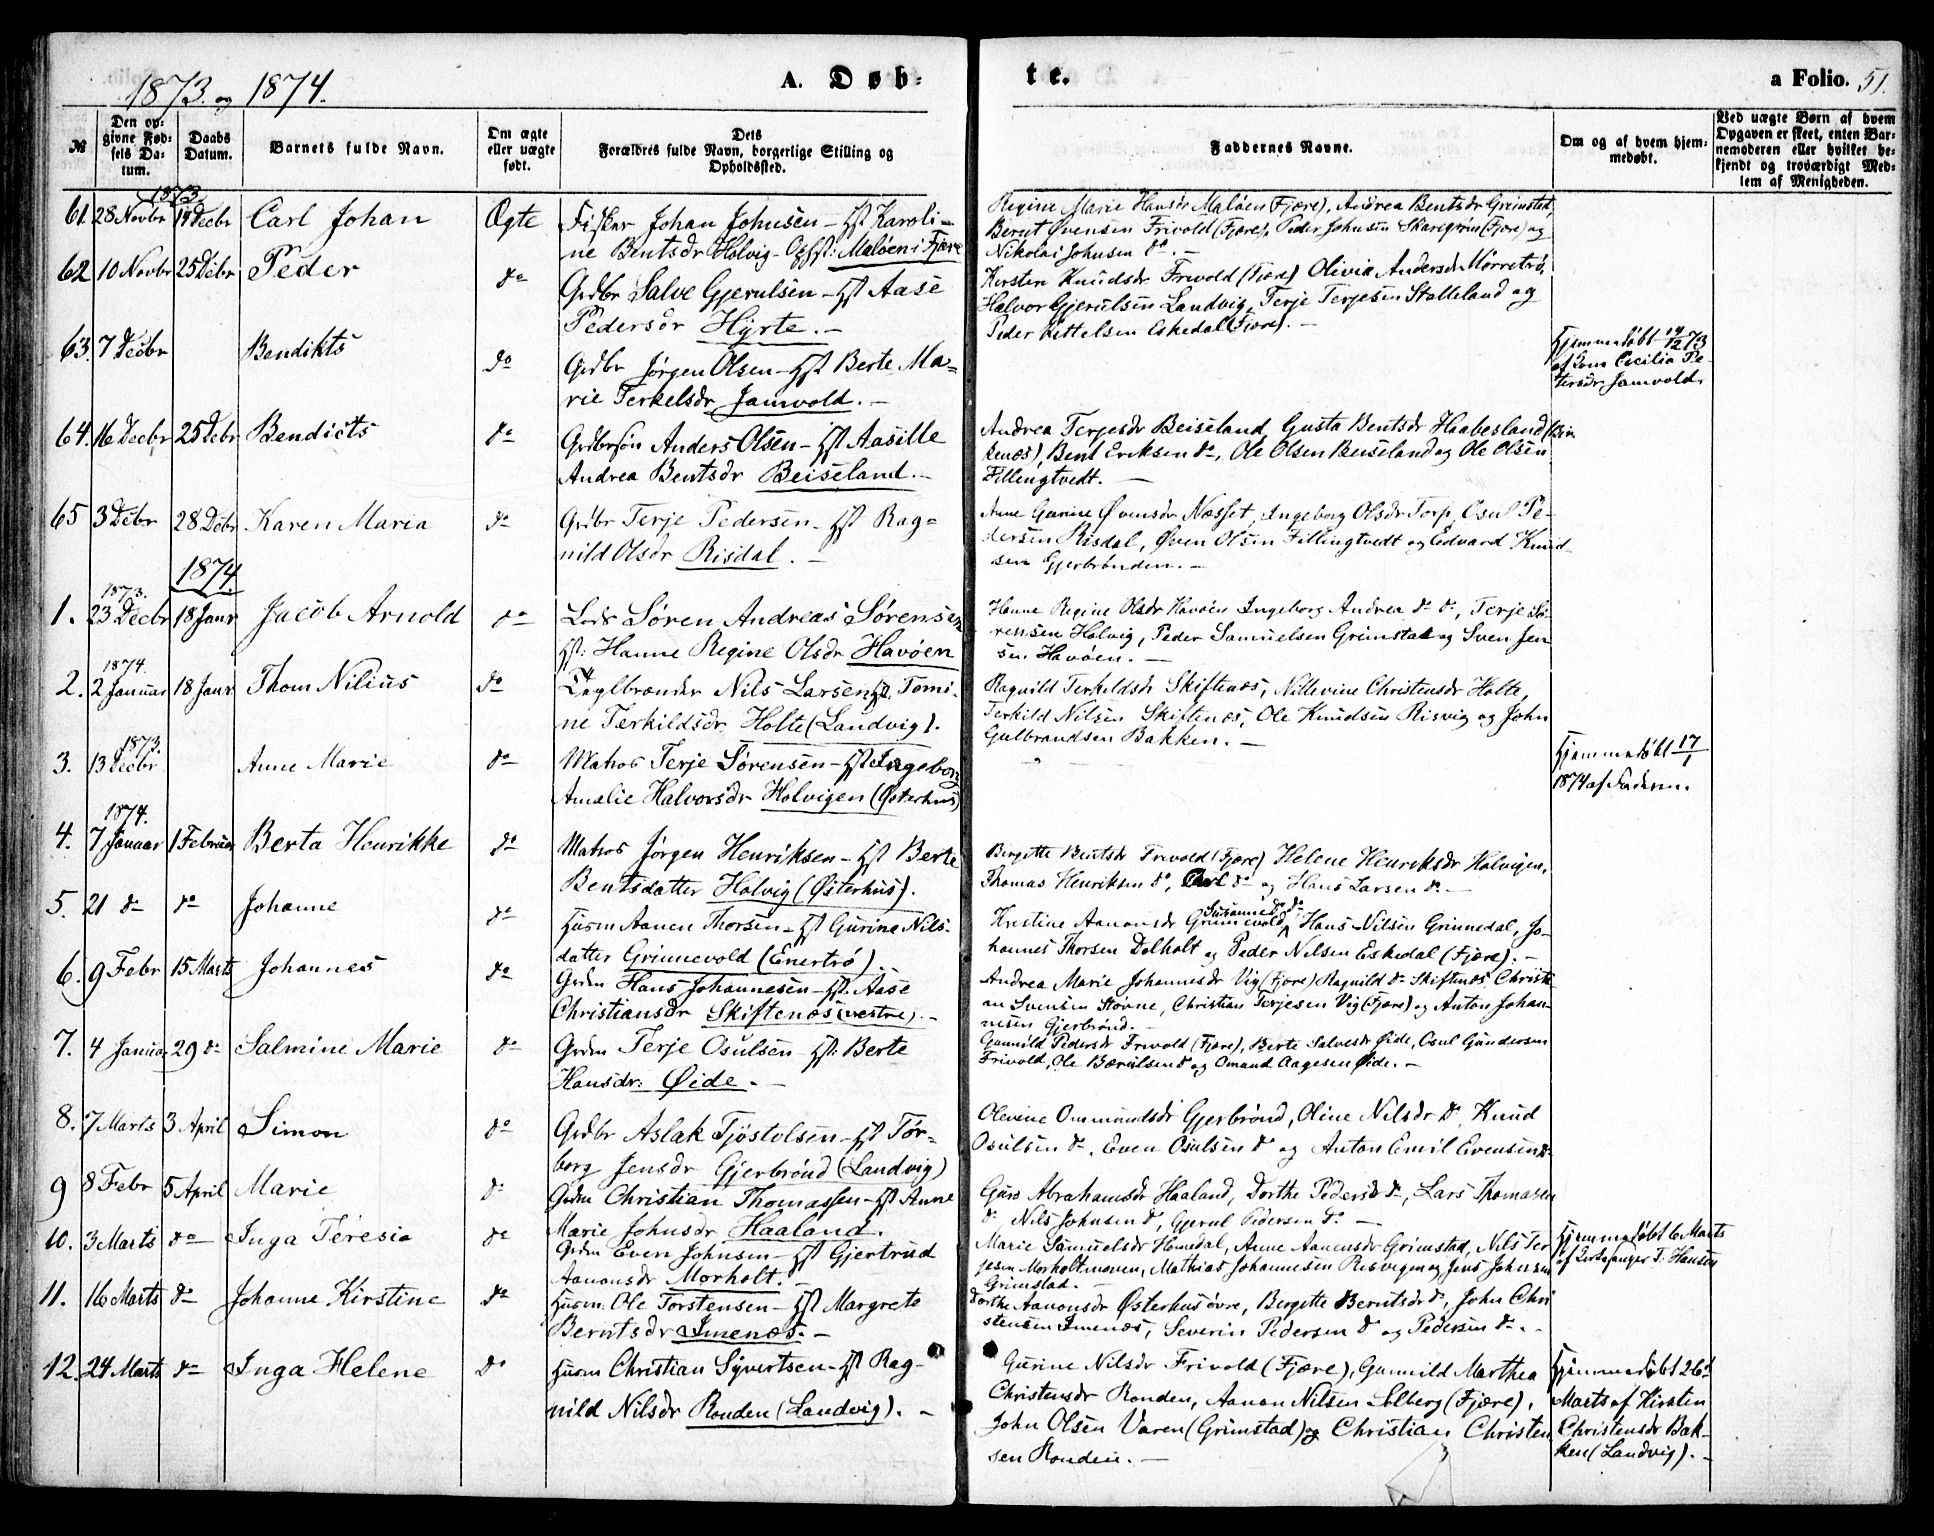 1873. og 1874.
A. Døb-
te.
a Folio. 51.
№
Den op-
givne Fød-
sels Da-
tum.
Daabs
Datum.
Barnets fulde Navn.
Om ægte
eller uægte
født.
Dets
Forældres fulde Navn, borgerlige Stilling og
Opholdssted.
Faddernes Navne.
Om og af hvem hjem-
medøbt.
Ved uægte Børn af hvem
Opgaven er skeet, enten Bar-
nemoderen eller hvilket be-
kjendt og troværdigt Med-
lem af Menigheden.
1873.
61. 28 Novbr Decbr Carl Johan Ægte Fisker Johan Johnsen – Hst Karoli-
ne Bentsdr Holvig – Opst: Maløen i Fjære
Regine Marie Hansdr Maløen (Fjære), Andrea Bentsdr Grimstad,
Bernt Øvensen Frivold (Fjære), Peder Johnsen (Fjære) og
Nikolai Johnsen do. –
62 10 Novbr 25 Debr Peder do Grdbr Salve Gjerulsen – Hst Aase
Pedersdr Hyrte. –
Kirsten Knudsdr Frivold (Fjære) Olivia Andersdr Mørretrø,
Halvor Gjerulsen Landvig, Terje Terjesen Stalleland og
Peder Kittelsen Eskedal (Fjære). –
63. 7 Decbr Bendikts do Grdbr Jørgen Olsen – Hst Berte Ma-
rie Terkelsdr Jamvold. –
Hjemmedøbt 14/12 73
af Cecilia Pe-
tersdr Jamvold.
64. 16 Decbr 25 Debr Bendicts do Grdbrsøn Anders Olsen – Hst Aasille
Andrea Bentsdr Beiseland. –
Andrea Terjesdr Beiseland, Gusta Bentsdr Haabesland (Bir
kenæs), Bent Eriksen do, Ole Olsen Beiseland og Ole Olsen
Fillingtvedt. –
65 3 Debr 28 Debr Karen Maria do Grdbr Terje Pedersen – Hst Rag-
nild Olsdr Risdal. –
Anne Gurine Øvensdr Næsset, Ingeborg Olsdr Torp, Osul Pe-
dersen Risdal, Øven Olsen Fillingtvedt og Edvard Knud-
sen Gjerbrønden. –
1874.
1873.
1. 23 Decbr 18 Janr Jacob Arnold do Lods Søren Andreas Sørensen
Hst: Hanne Regine Olsdr Havøen
Hanne Regine Olsdr Havøen Ingeborg Andrea do do, Terje Sø-
rensen Holvig, Peder Samuelsen Grimstad og Sven Jen
sen Havøen. –
1874.
2. 2 Januar 18 Janr Thom Nilius do Teglbrænder Nils Larsen Hst Tomi-
ne Terkildsdr Holte (Landvig).
Ragnild Terkildsdr Skiftenæs, Nillevine Christensdr Holte,
Terkild Nilsen Skiftenæs, Ole Knudsen Risvig og John
Gulbrandsen Bakken. –
1873.
3. 13 Decbr Anne Marie do Matros Terje Sørensen – Hst Ingeborg
Amalie Halvorsdr Holvigen (Østerhus)
Hjemmedøbt 17/1
1874 af Faderen.
1874.
4. 7 Januar 1 Februar Berta Henrikke do Matros Jørgen Henriksen – Hst Berte
Bentsdatter Holvig (Østerhus).
Birgitte Bentsdr Frivold (Fjære) Helene Henriksdr Holvigen,
Thomas Henriksen do, do og Hans Larsen do –
5. 21 do do Johanne do Husm Aanen Thorsen – Hst Gurine Nils-
datter Grinnevold (Enertrø).
Susanne do do
Kristine Aanonsdr Grinnevold, Hans Nilsen Grinnedal, Jo-
hannes Thorsen Dolholt og Peder Nilsen Eskedal (Fjære). –
6. 9 Febr 15 Marts Johannes do Grdm Hans Johannesen – Hst: Aase
Christiansdr Skiftenæs (vestre). –
Andrea Marie Johannesdr Vig (Fjære) Ragnild do Skiftenæs, Christi-
an Svensen Støvne, Christian Terjesen Vig (Fjære) og Anton Johan-
nesen Gjerbrønd. –
7. 4 Januar 29 do Salmine Marie do Grdm Terje Osulsen – Hst: Berte
Hansdr: Øide. –
Gunnild Pedersdr Frivold (Fjære), Berte Salvesdr Øide, Osul Gundersen
Frivold, Ole Bærulsen do og Omund Aagesen Øide. –
8. 7 Marts 3 April Simon do Grdbr Aslak Tjøstolsen – Hst Tor-
borg Jensdr Gjerbrønd (Landvig)
Olevine Ommundsdr Gjerbrønd, Oline Nilsdr do, Knud
Osulsen do, Even Osulsen do og Anton Emil Evensen do
9 8 Febr 5 April Marie do Grdm Christian Thomassen – Hst Anne
Marie Johnsdr Haaland.
Guro Abrahamsdr Haaland, Dorthe Pedersdr do, Lars Thomasen
do, Nils Johnsen do, Gjerul Pedersen do –
10. 3 Marts do Inga Teresia do Grdm Even Johnsen – Hst Gjertrud
Aanonsdr Morholt. –
Marie Samuelsdr Homedal, Anne Aanensdr Grimstad, Nils Ter-
jesen Morholtmoen, Mathias Johannesen Risvigen og Jens Johnsen
Grimstad. –
Hjemmedøbt 6 Marts
af Kirkesanger T. Hansen
11. 16 Marts do Johanne Kirstine do Husm: Ole Torstensen – Hst Margrete
Berntsdr Imenæs. –
Dorthe Aanonsdr Østerhus øvre, Bergette Berntsdr do, John Chri
stensen Imenæs, Severin Pedersen do og Pedersen do. –
12. 24 Marts do Inga Helene do Husm Christian Syvertsen – Hst Rag-
nild Nilsdr Ronden (Landvig). –
Gurine Nilsdr Frivold (Fjære), Gunnild Marthea
Christensdr Ronden, Aanon Nilsen Solberg (Fjære),
John Olsen Varen (Grimstad) og Christian Christen
sen Ronden. –
Hjemmedøbt 26d
Marts af Kirsten
Christensdr Bak-
ken (Landvig). –